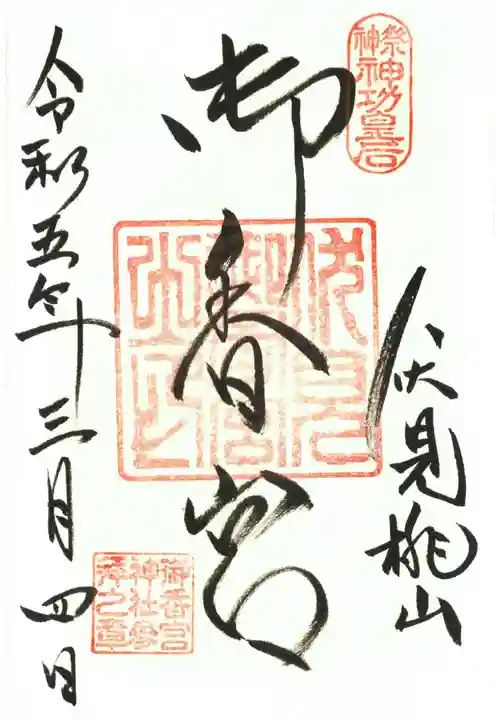 祭神
神功皇后
伏見桃山
御香宮
伏見
御香宮
之印
令和五年三月四日
御香宮
神社參
拜之章